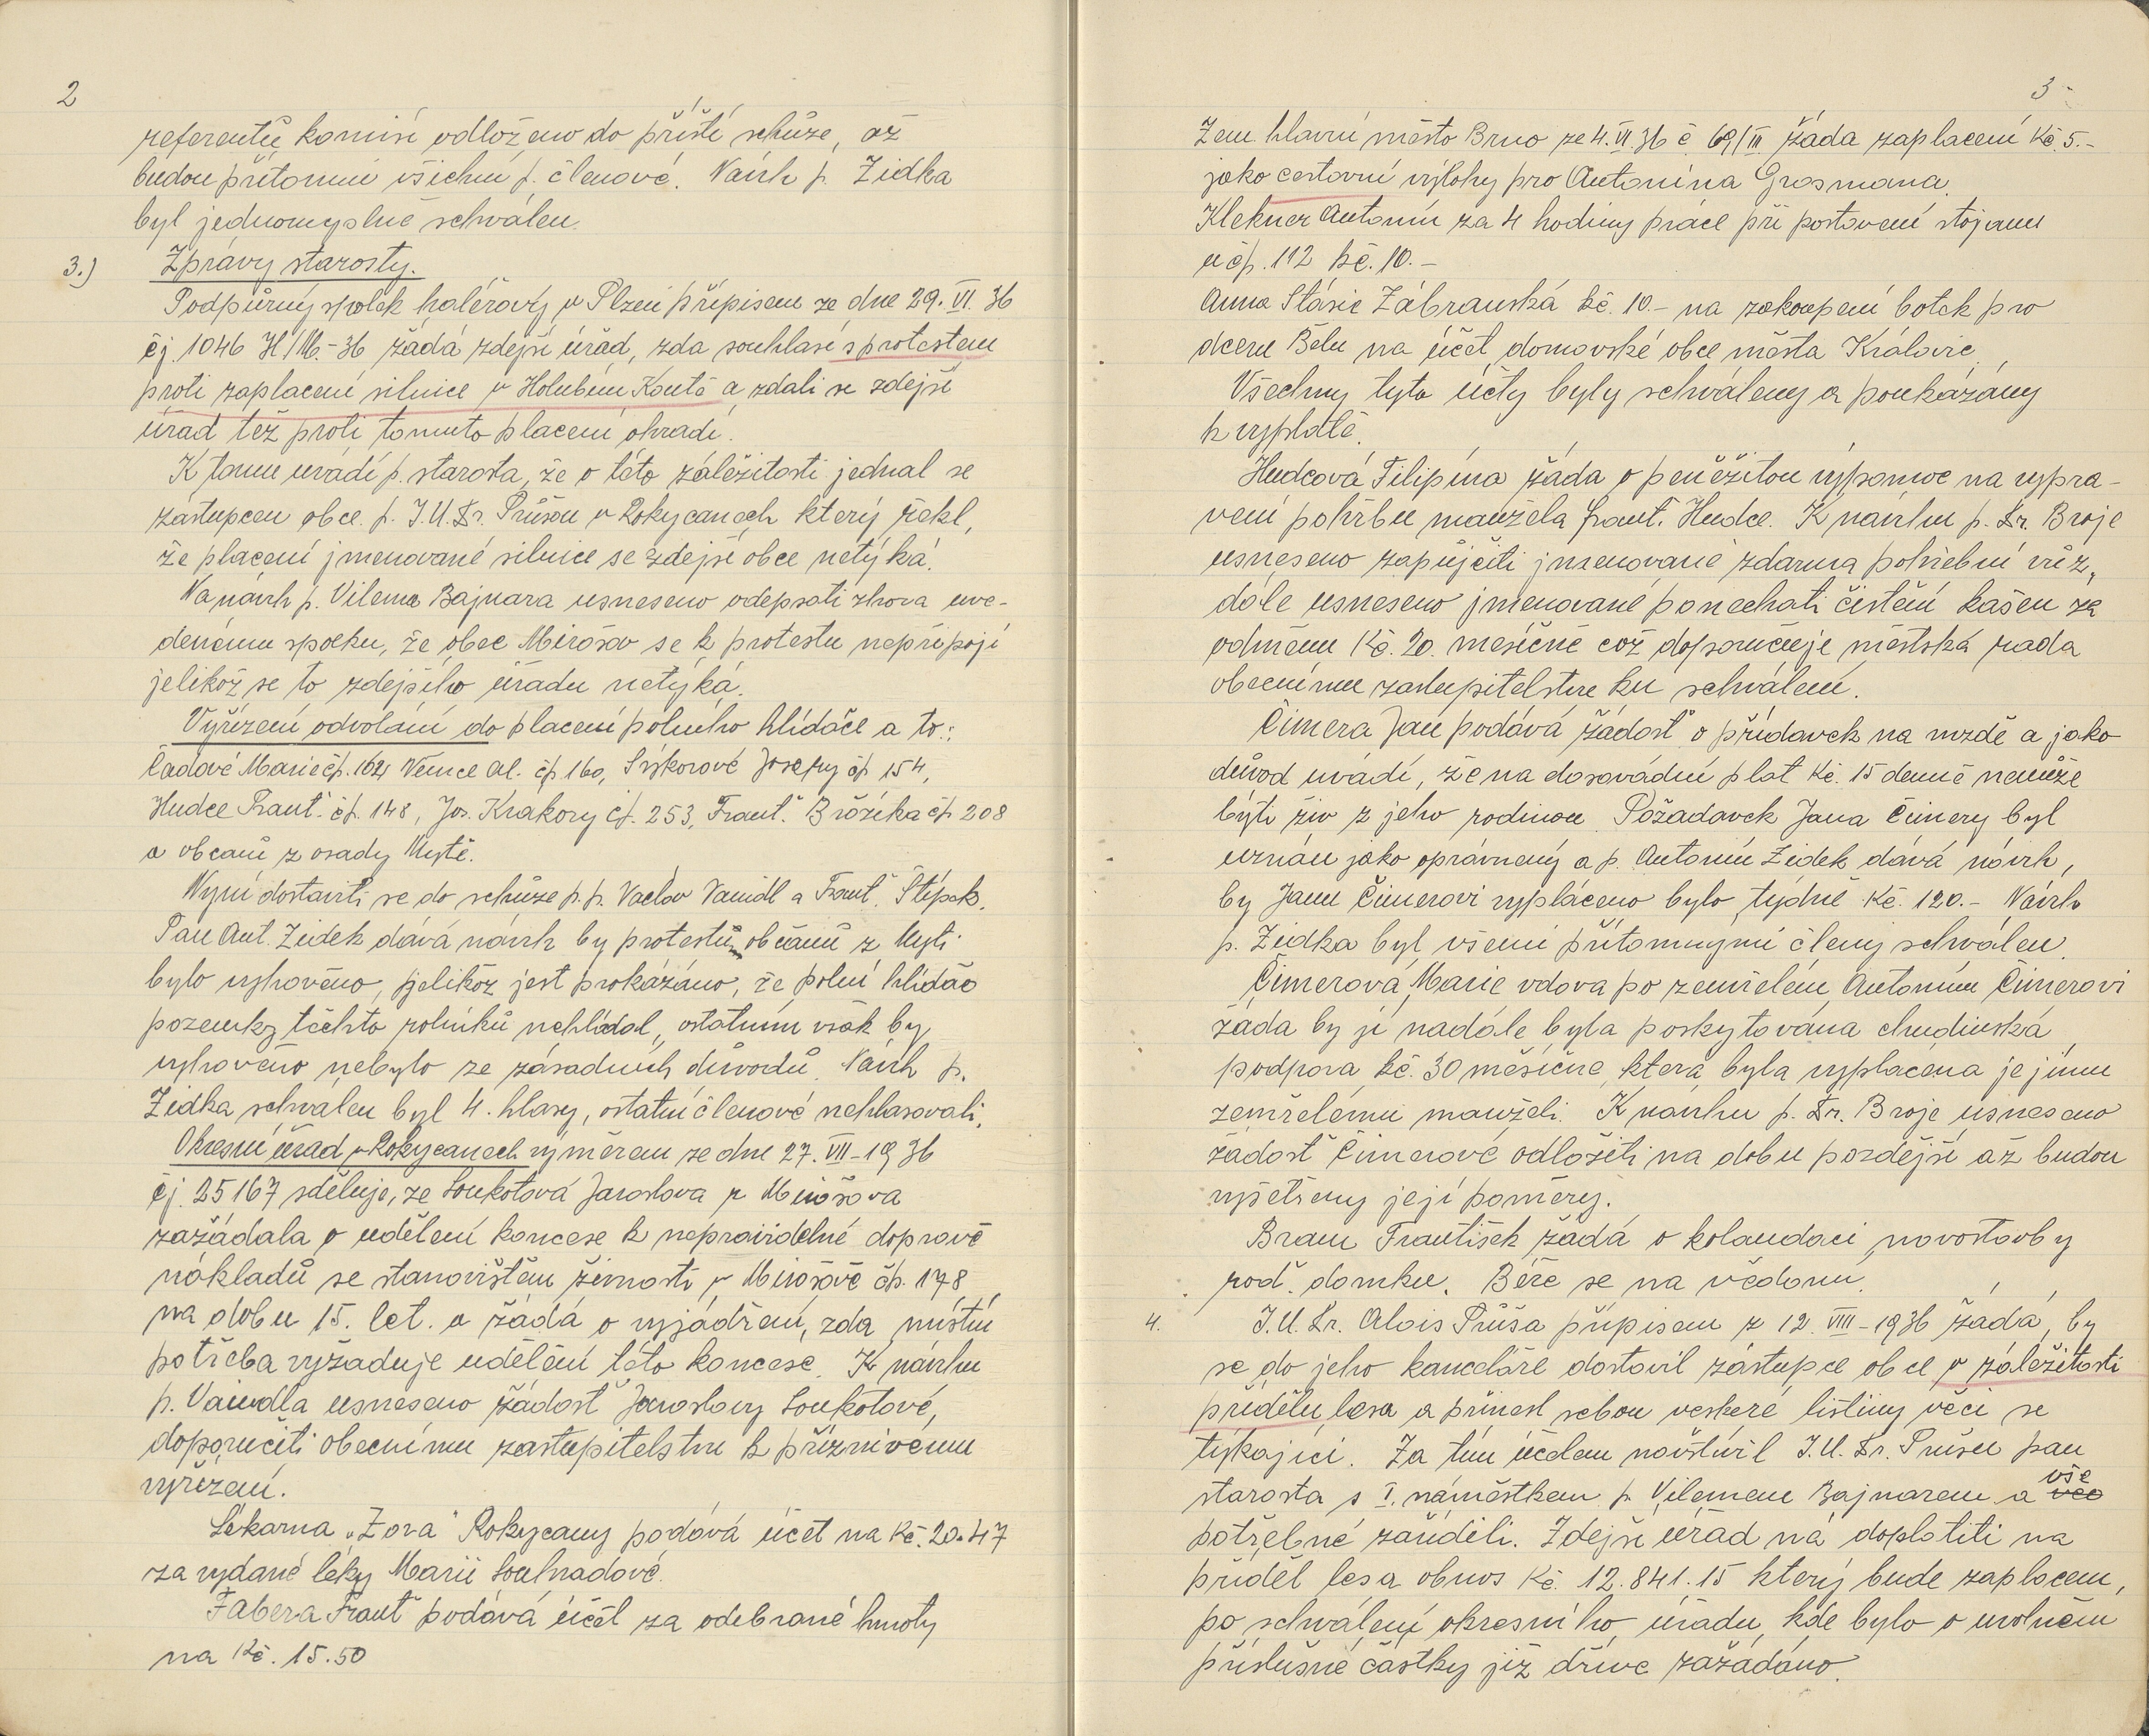 2
referentů komisí odloženo do příští schůze, až
budou přítomni všichni p. členové. Návrh p. Zidka
byl jednomyslně schválen.
3.) Zprávy starosty.
Podpůrný spolek haléřový v Plzni přípisem ze dne 29. VI. 36
čj. 1046 H/M.-36 žádá zdejší úřad, zda souhlasí s protestem
proti zaplacení silnice v Holubím Koutě a zdali se zdejší
úřad též proti tomuto placení ohradí.
K tomu uvádí p. starosta, že o této záležitosti jednal se
zástupcem obce p. J.U.Dr. Průšou v Rokycanech který řekl,
že placení jmenované silnice se zdejší obce netýká.
Na návrh p. Vilema Bajnara usneseno odepsati zhora uve-
denému spolku, že obec Mirošov se k protestu nepřipojí
jelikož se to zdejšího úřadu netýká.
Vyřízení odvolání do placení polního hlídače a to:
Čadové Marie čp. 162, Vernce Al. čp. 160, Sýkorové Josefy čp 154,
Hudce Frant. čp. 148, Jos. Krakory čp. 253, Frant. Brožíka čp 208
a občanů z osady Mytě.
Nyní dostavili se do schůze p.p. Vaclav Vaindl a Frant. Štípek.
Pan Ant. Zidek dává návrh by protestům občanů z Myti
bylo vyhověno, jelikož jest prokázáno, že polní hlídač
pozemky těchto rolníků nehlídal, ostatním však by
vyhověno nebylo ze zásadních důvodů. Návrh p.
Zidka schválen byl 4. hlasy, ostatní členové nehlasovali.
Okresní úřad v Rokycanech výměrem ze dne 27. VII - 1936
čj. 25167 sděluje, že Loukotová Jaroslava z Mirošova
zažádala o udělení koncese k nepravidelné dopravě
nákladů se stanovištěm živnosti v Mirošově čp. 178
na dobu 15. let. a žádá o vyjádření, zda místní
potřeba vyžaduje udělení této koncese. K návrhu
p. Vaindla usneseno žádost Jaroslavy Loukotové,
doporučiti obecnímu zastupitelstvu k příznivému
vyřízení.
Lékarna "Zora" Rokycany podává účet na Kč. 20.47
za vydané léky Marii Soulnadové.
Fabera Frant. podává účet za odebrané hmoty
na Kč. 15.50
3
Zem. hlavní město Brno ze 4. VI. 36 č. 69/III žáda zaplacení Kč. 5.-
jako cestovní výlohy pro Antonína Grosmana.
Klekner Antonín za 4 hodiny práce při postavení stojanu
u čp. 112 kč. 10.-
Anna Stásie Zábranská kč. 10.- na zakoupení botek pro
dceru Bělu na účet domovské obce města Královic.
Všechny tyto účty byly schváleny a poukázány
k výplatě.
Hudcová Filipína žáda o peněžitou výpomoc na vypra-
vení pohřbu manžela Frant. Hudce. K návrhu p. Dr. Broje
usneseno zapůjčiti jmenované zdarma pohřební vůz,
dále usneseno jmenované ponechati čistění kašen za
odměnu Kč. 20. mesíčně což doporučuje městská rada
obecnímu zastupitelstvu ku schválení.
Čimera Jan podává žádost o přídavek na mzdě a jako
důvod uvádí, že na dosavádní plat Kč. 15 denně nemůže
býti živ z jeho rodinou. Požadavek Jana Čimery byl
uznán jako oprávněný a p. Antonín Zidek dává návrh,
by Janu Čimerovi vypláceno bylo týdně Kč. 120.- Návrh
p. Zidka byl všemi přítomnými členy schválen.
Čimerová Marie vdova po zemřelém Antonínu Čimerovi
žáda by jí nadále byla poskytována chudinská
podpora kč. 30 měsíčne, která byla vyplácena jejímu
zemřelému manželi. K navrhu p. Dr. Broje usneseno
žádost Čimerové odložiti na dobu pozdější až budou
vyšetřeny její poměry.
Bram František žádá o kolaudaci novostavby
rod. domku. Béře se na vědomí.
4. J.U.Dr. Alois Průša přípisem z 12. VIII - 1936 žádá, by
se do jeho kanceláře dostavil zástupce obce v záležitosti
přídělu lesa a přinesl sebou veškeré listiny věci se
týkající. Za tím účelem navštívil J.U.Dr. Průšu pan
starosta s I. náměstkem p. Vilemem Bajnarem a vše
potřebné zařídili. Zdejší úřad má doplatiti na
příděl lesa obnos Kč. 12.841.15 který bude zaplacen,
po schválení okresního úřadu, kde bylo o uvolnění
příslušné částky již dříve zažádáno.